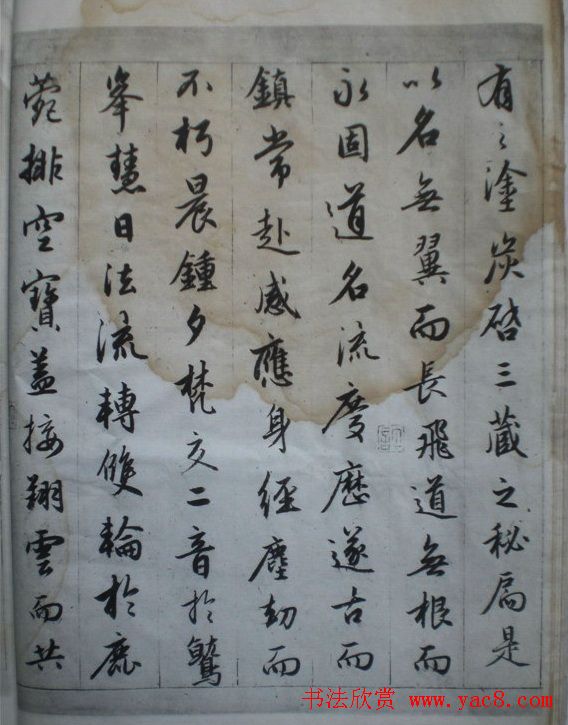 有之塗炭啓三藏之秘扃是
以名無翼而長飛道無根而
永固道名流慶歷遂古而
鎮常赴感應身經塵劫而
不朽晨鍾夕梵交二音於鷲
峯慧日法流轉雙輪於鹿
菀排空寶蓋接翔雲而共
书法欣赏 www.yac8.com